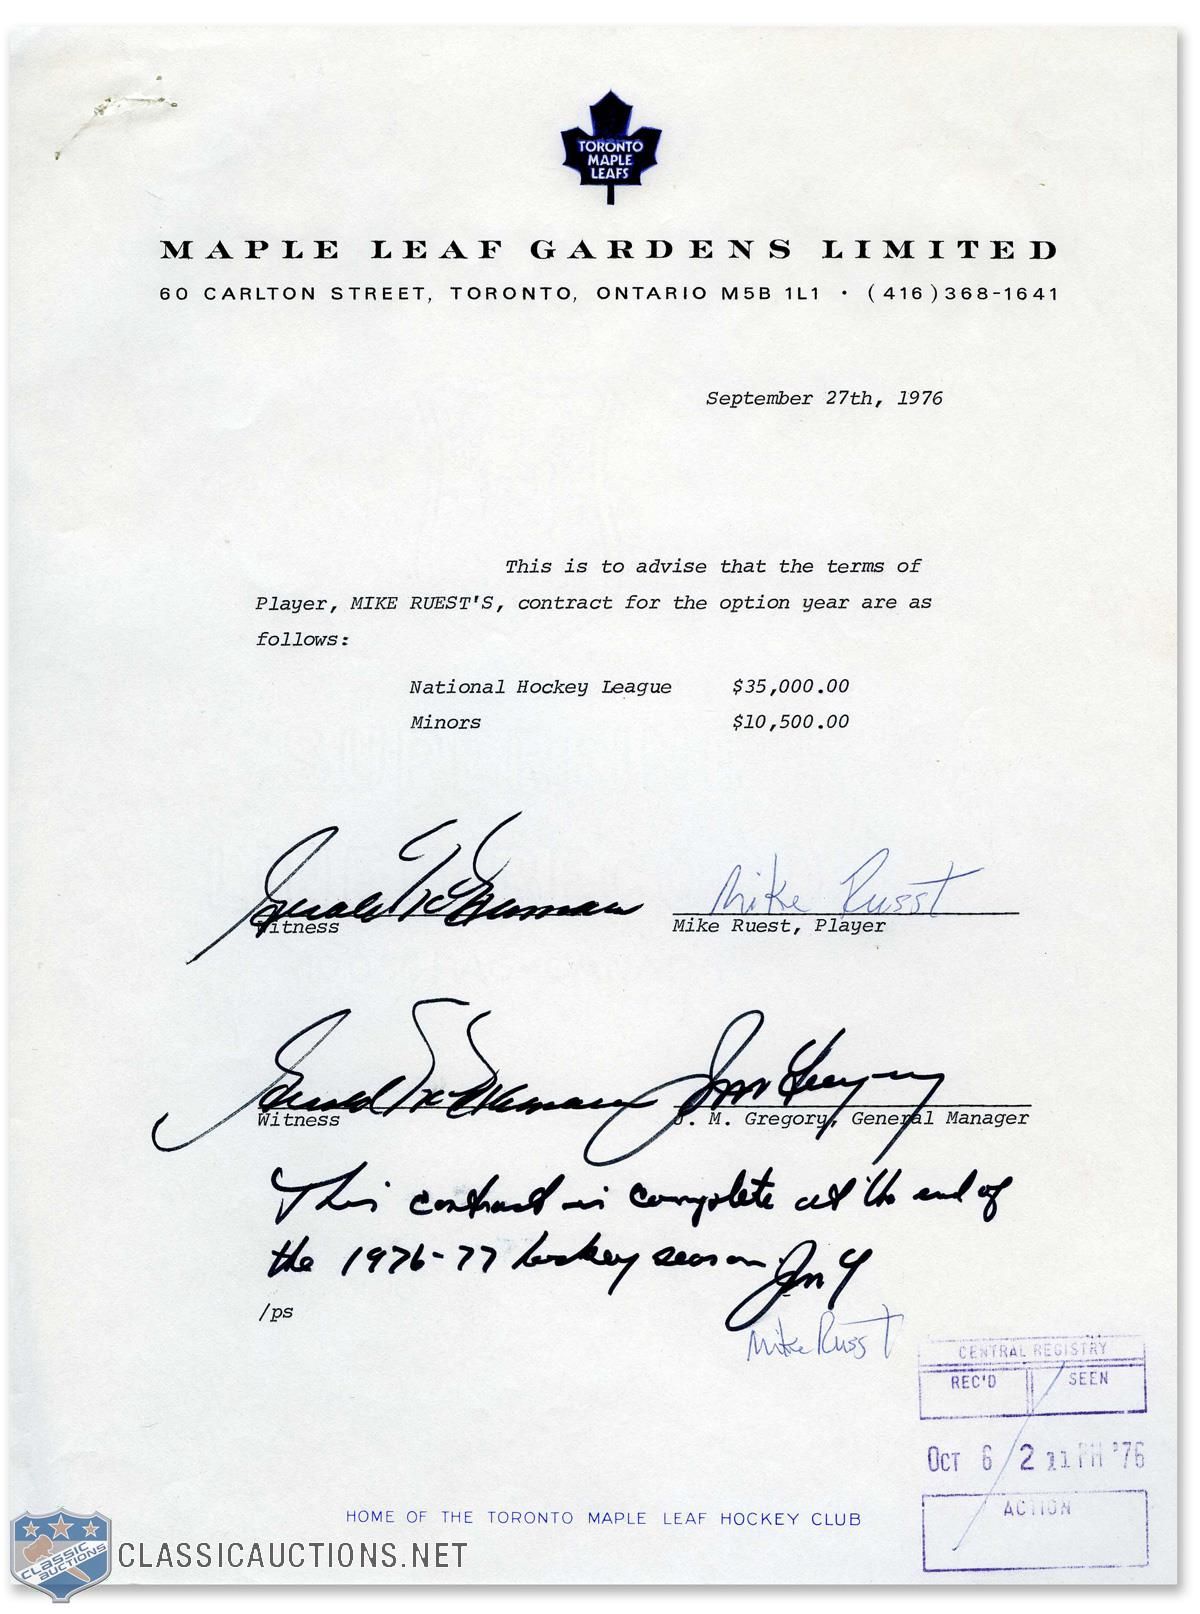 TORONTO
MAPLE
LEAFS
MAPLE LEAF GARDENS LIMITED
60 CARLTON STREET, TORONTO, ONTARIO M5B 1L1 · (416)368-1641
September 27th, 1976
This is to advise that the terms of
Player, MIKE RUEST'S, contract for the option year are as
follows:
National Hockey League $35,000.00
Minors $10,500.00
Mike Ruest
Witness Mike Ruest, Player
Witness J. M. Gregory, General Manager
This contract is complete at the end of
the 1976-77 hockey season.
/ps
Mike Ruest
CENTRAL REGISTRY
REC'D SEEN
OCT 6 2 11 PM '76
ACTION
HOME OF THE TORONTO MAPLE LEAF HOCKEY CLUB
CLASSIC
AUCTIONS
CLASSICAUCTIONS.NET